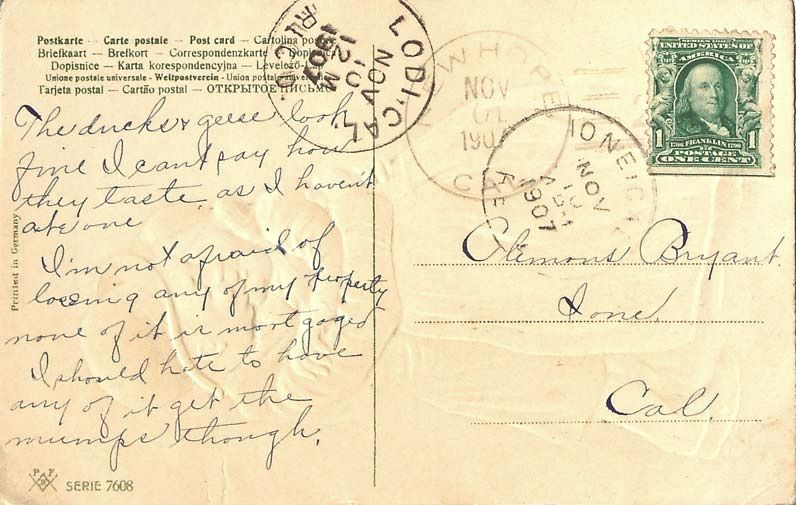 Postkarte — Carte postale — Post card — Cartolina postale
Briefkaart — Brefkort — Correspondenzkarte — Dopisnica
Dopisnice — Karta korespondencyjna — Levelező-Lap
Unione postale universale - Weltpostverein - Union postale universelle
Tarjeta postal — Cartão postal — ОТКРЫТОЕ ПИСЬМО
LODI, CAL.
NOV
10
12 M
1907
NEW HOPE
NOV
190
CAL
IONE, CAL
NOV
10
1907
REC'D
SERIES 1902
UNITED STATES OF
AMERICA
1 1790 FRANKLIN 1790 1
POSTAGE
ONE CENT
The ducks & geese look
fine I cant say how
they taste as I haven't
ate one
I'm not afraid of
loseing any of my property
none of it is mortgaged
I should hate to have
any of it get the
mumps though.
Clemons Bryant.
Ione.
Cal.
Printed in Germany
P F
SERIE 7608